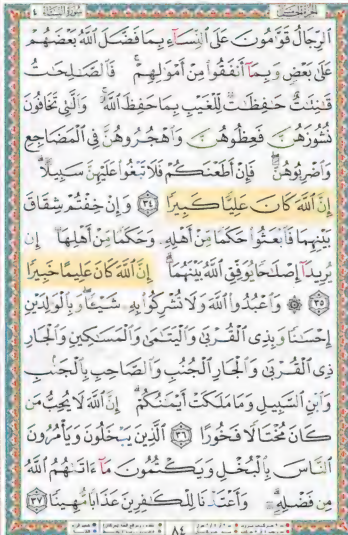 الجزء الخامس سورة النساء ٤
ٱلرِّجَالُ قَوَّٰمُونَ عَلَى ٱلنِّسَآءِ بِمَا فَضَّلَ ٱللَّهُ بَعْضَهُمْ
عَلَىٰ بَعْضٍ وَبِمَآ أَنفَقُوا۟ مِنْ أَمْوَٰلِهِمْ ۚ فَٱلصَّٰلِحَٰتُ
قَٰنِتَٰتٌ حَٰفِظَٰتٌ لِّلْغَيْبِ بِمَا حَفِظَ ٱللَّهُ ۚ وَٱلَّٰتِى تَخَافُونَ
نُشُوزَهُنَّ فَعِظُوهُنَّ وَٱهْجُرُوهُنَّ فِى ٱلْمَضَاجِعِ
وَٱضْرِبُوهُنَّ ۖ فَإِنْ أَطَعْنَكُمْ فَلَا تَبْغُوا۟ عَلَيْهِنَّ سَبِيلًا ۗ
إِنَّ ٱللَّهَ كَانَ عَلِيًّا كَبِيرًا ٣٤ وَإِنْ خِفْتُمْ شِقَاقَ
بَيْنِهِمَا فَٱبْعَثُوا۟ حَكَمًا مِّنْ أَهْلِهِۦ وَحَكَمًا مِّنْ أَهْلِهَآ إِن
يُرِيدَآ إِصْلَٰحًا يُوَفِّقِ ٱللَّهُ بَيْنَهُمَآ ۗ إِنَّ ٱللَّهَ كَانَ عَلِيمًا خَبِيرًا
٣٥ ۞ وَٱعْبُدُوا۟ ٱللَّهَ وَلَا تُشْرِكُوا۟ بِهِۦ شَيْـًٔا ۖ وَبِٱلْوَٰلِدَيْنِ
إِحْسَٰنًا وَبِذِى ٱلْقُرْبَىٰ وَٱلْيَتَٰمَىٰ وَٱلْمَسَٰكِينِ وَٱلْجَارِ
ذِى ٱلْقُرْبَىٰ وَٱلْجَارِ ٱلْجُنُبِ وَٱلصَّاحِبِ بِٱلْجَنۢبِ
وَٱبْنِ ٱلسَّبِيلِ وَمَا مَلَكَتْ أَيْمَٰنُكُمْ ۗ إِنَّ ٱللَّهَ لَا يُحِبُّ مَن
كَانَ مُخْتَالًا فَخُورًا ٣٦ ٱلَّذِينَ يَبْخَلُونَ وَيَأْمُرُونَ
ٱلنَّاسَ بِٱلْبُخْلِ وَيَكْتُمُونَ مَآ ءَاتَىٰهُمُ ٱللَّهُ
مِن فَضْلِهِۦ ۗ وَأَعْتَدْنَا لِلْكَٰفِرِينَ عَذَابًا مُّهِينًا ٣٧
٨٤